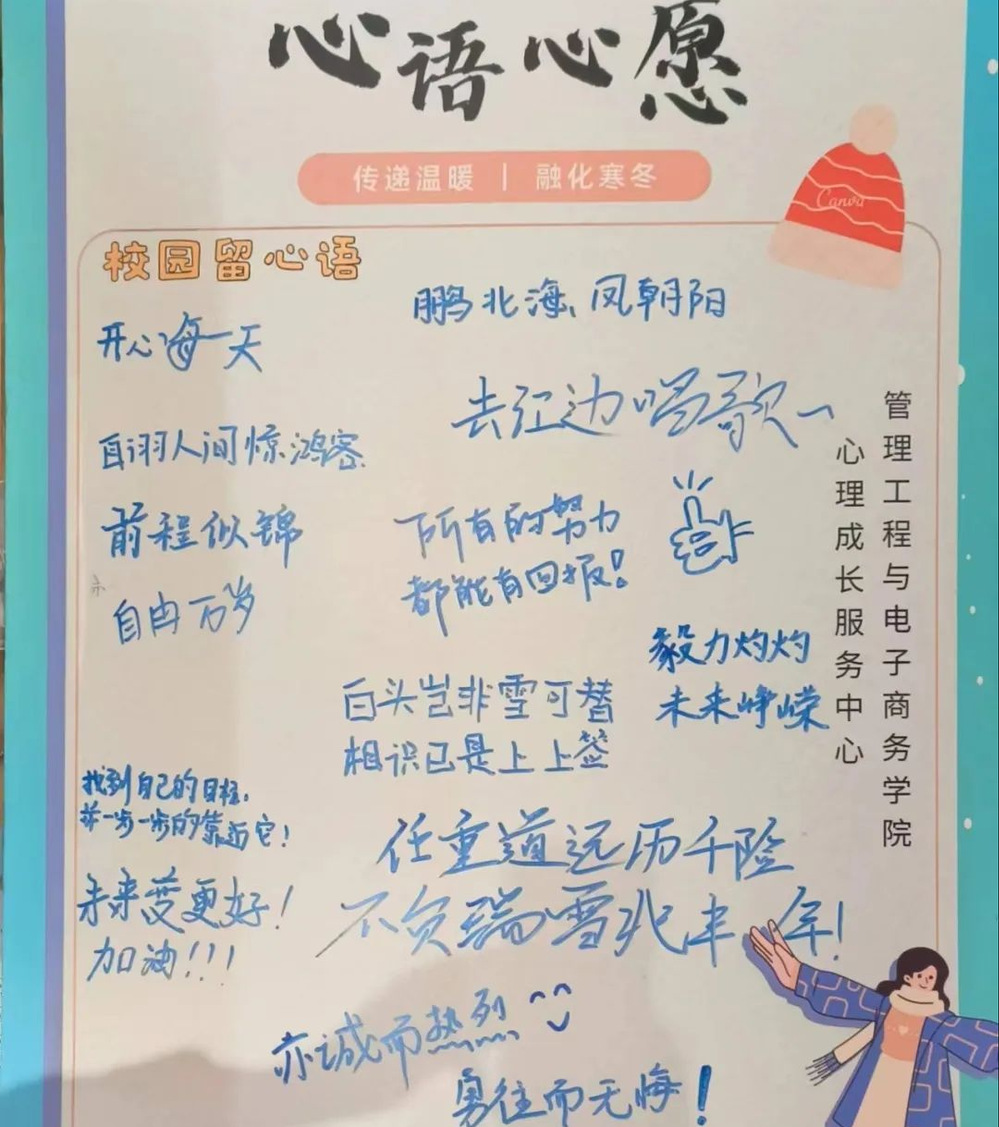 心语心愿
传递温暖 | 融化寒冬
Canva
校园留心语
鹏北海、凤朝阳
开心每一天
去江边唱歌~
自诩人间惊鸿客
前程似锦
所有的努力
都能有回报!
自由万岁
毅力灼灼
未来峥嵘
白头岂非雪可替
相识已是上上签
找到自己的目标,
并一步一步的靠近它!
任重道远历千险
不负瑞雪兆丰年!
未来变更好!
加油!!!
亦诚而热烈
勇往而无悔!
管理工程与电子商务学院
心理成长服务中心